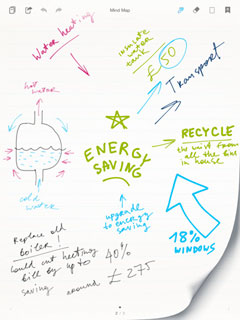 Mind Map
Water heating
insulate
water
tank
£ 50
Transport
hot
water
ENERGY
SAVING
RECYCLE
the
from
all the bins
in house
cold
water
upgrade
to energy
saving
18%
WINDOWS
Replace old
boiler!
Could cut heating
bill by up to 40%
saving around £275